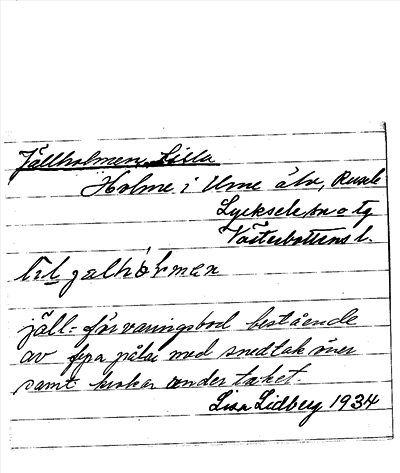 Jällholmen, Lilla
Holme i Ume älv, Rusele
Lycksele sn o tg
Västerbottens l.
jälholmen
jäll = förvaringsbod bestående
av fyra pålar med snedtak över
samt krokar under taket.
Lisa Lidberg 1934